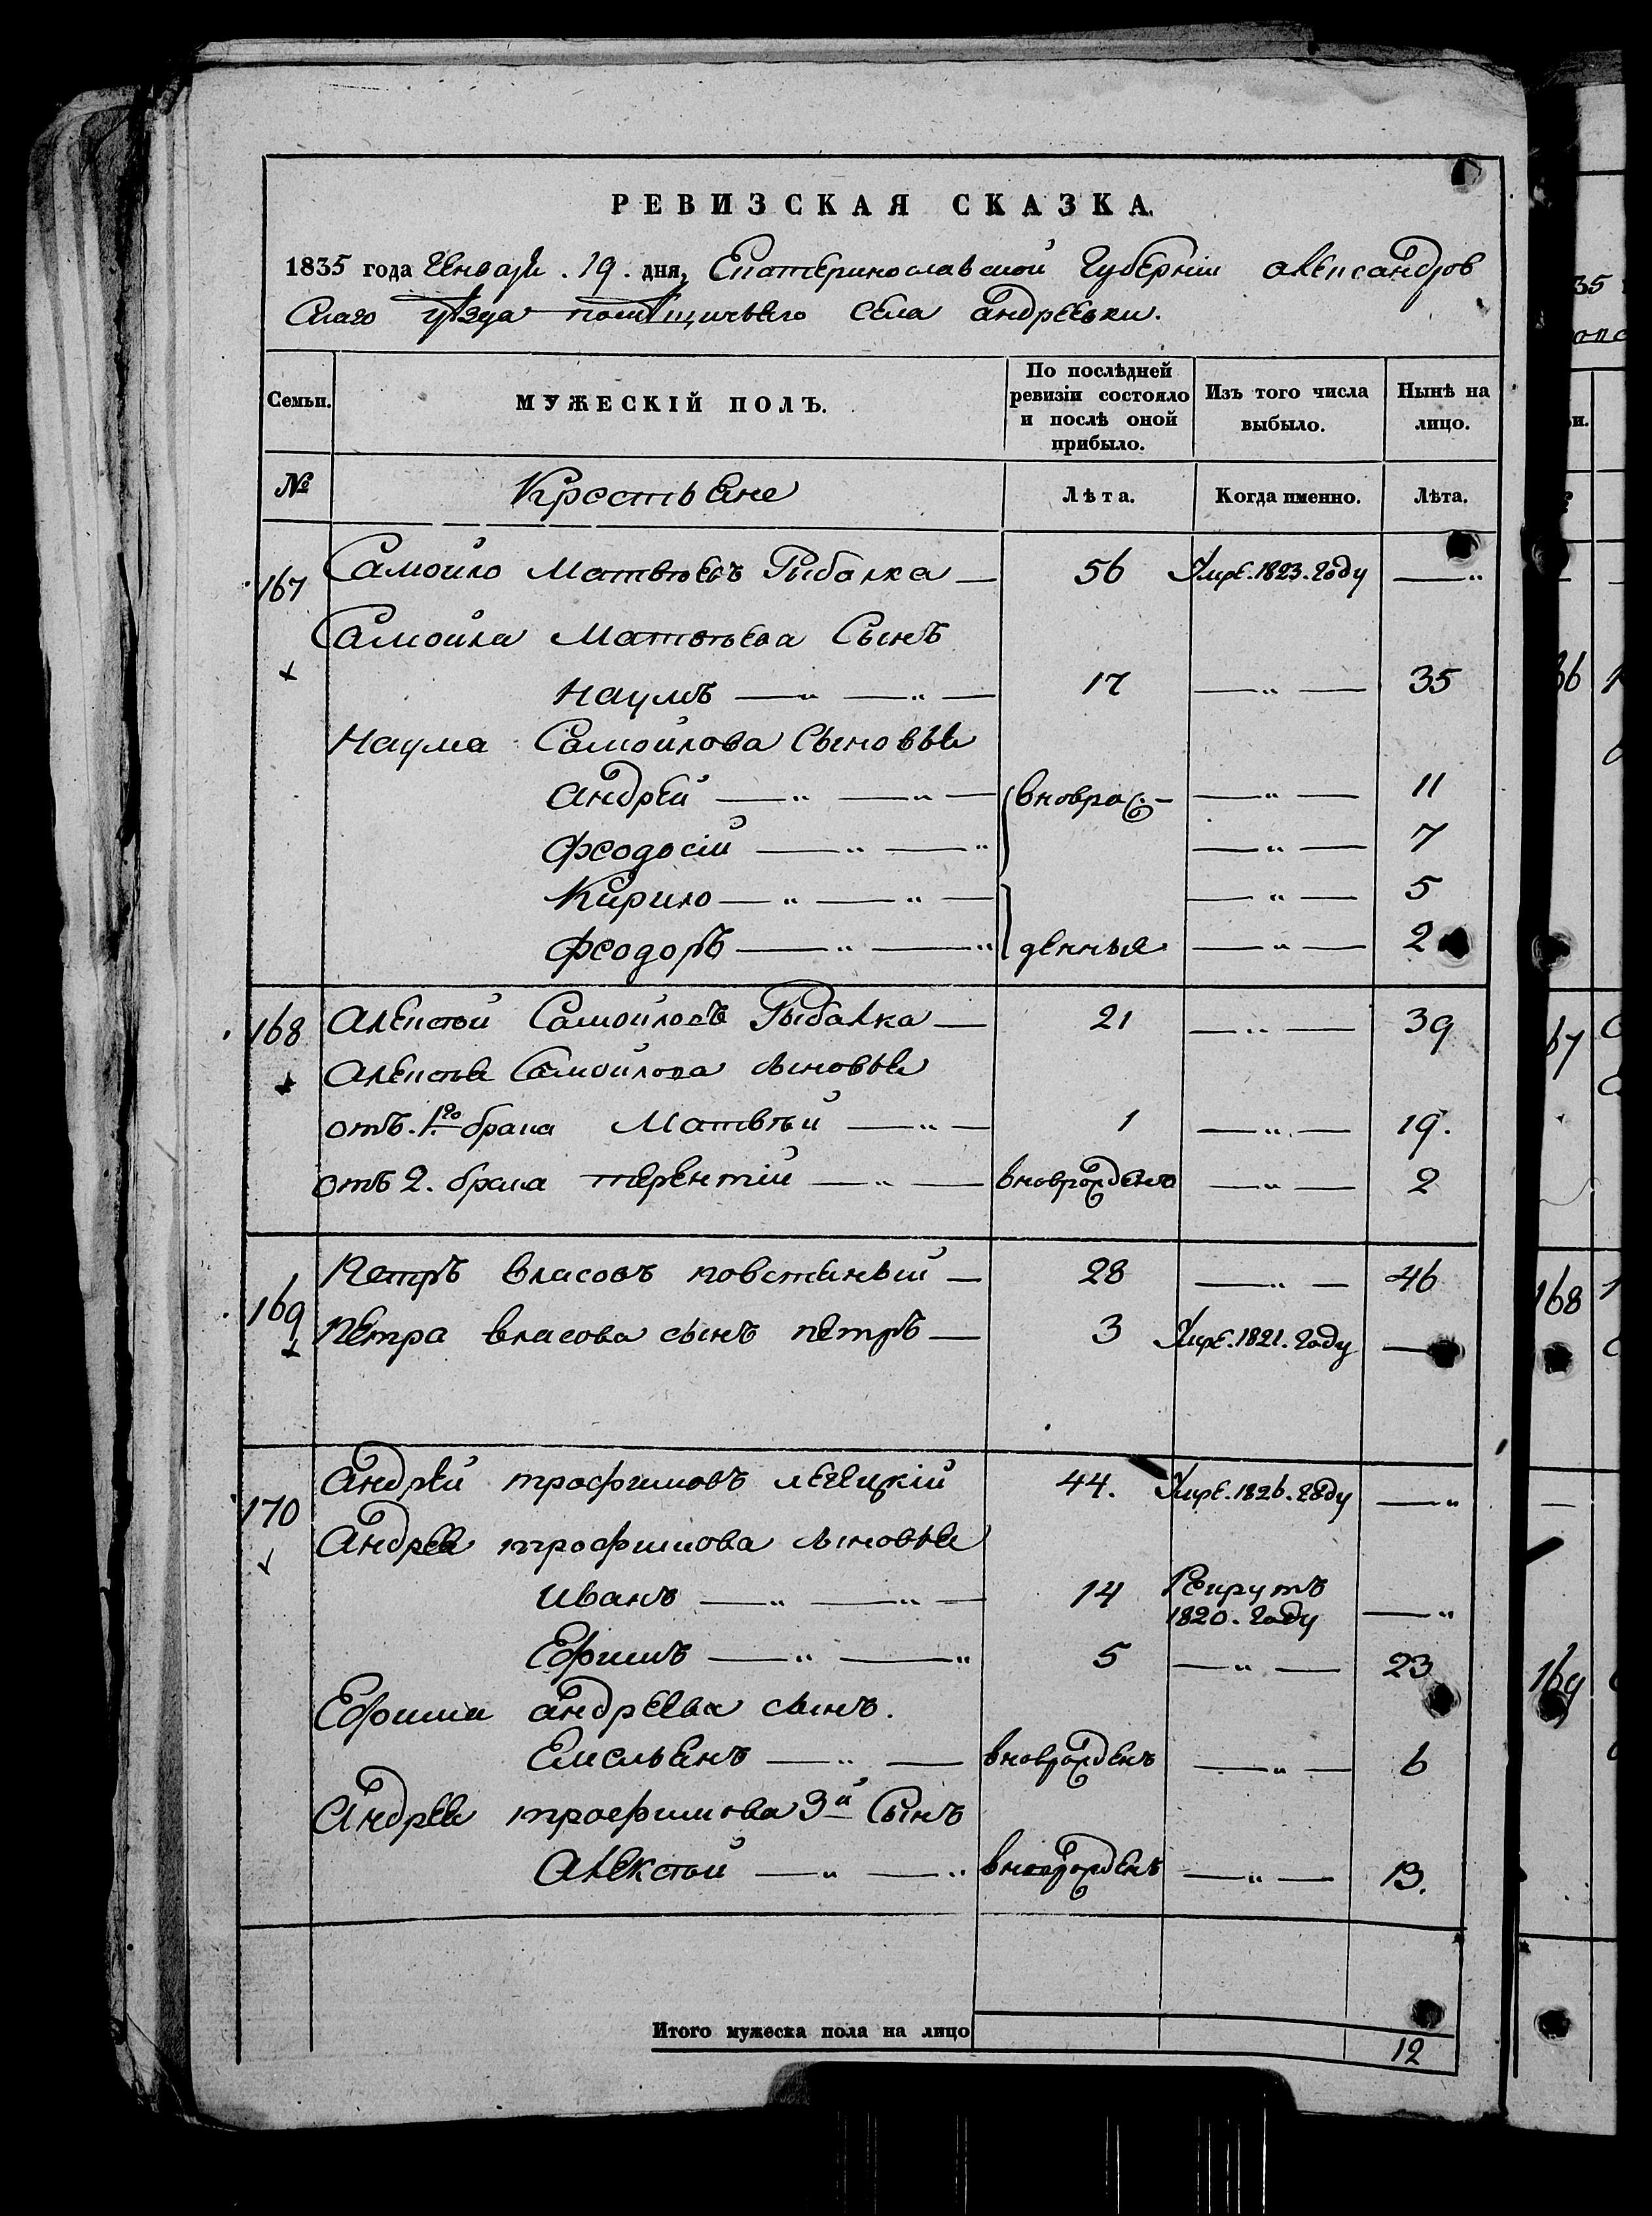 РЕВИЗСКАЯ СКАЗКА.
1835 года Генваря. 19. дня, Екатеринославской Губерніи Александров
скаго уѣзда помѣщичьяго села Андреевки.
Семьи. МУЖЕСКІЙ ПОЛЪ. По послѣдней ревизіи состояло и послѣ оной прибыло. Изъ того числа выбыло. Нынѣ на лицо.
№ Крестьяне Лѣта. Когда именно. Лѣта.
167 Самойло Матвѣевъ Рыбалка — 56 Умре. 1823. году —„
Самойла Матвѣева Сынъ
Наумъ —„ —„— 17 —„— 35
Наума Самойлова Сыновья
Андрей —„ —„— вноврож- —„— 11
Феодосій —„ —„ —„— 7
Кирило —„ —„— —„— 5
Феодоръ —„ —„ денныя —„— 2
168 Алексѣй Самойловъ Рыбалка — 21 —„— 39
Алексѣя Самойлова сыновья
отъ 1го брака Матвѣй —„— 1 —„— 19.
отъ 2. брака терентій —„— вноврожденъ —„— 2
169 Петръ власовъ — 28 —„— 46
Петра власова сынъ петръ — 3 Умре. 1821. году —
170 Андрей трофимовъ 44. Умре. 1826. году —„
Андрея трофимова сыновья
Иванъ —„ —„— 14 Рекрутъ
1820. году —„
Ефимъ —„ —„ 5 —„— 23
Ефима андреева сынъ.
Емельянъ —„— вноврожденъ —„— 6
Андрея трофимова 3й Сынъ
Алексѣй —„ —„ вноврожденъ —„— 13.
Итого мужеска пола на лицо 12
35
36
67
168
169